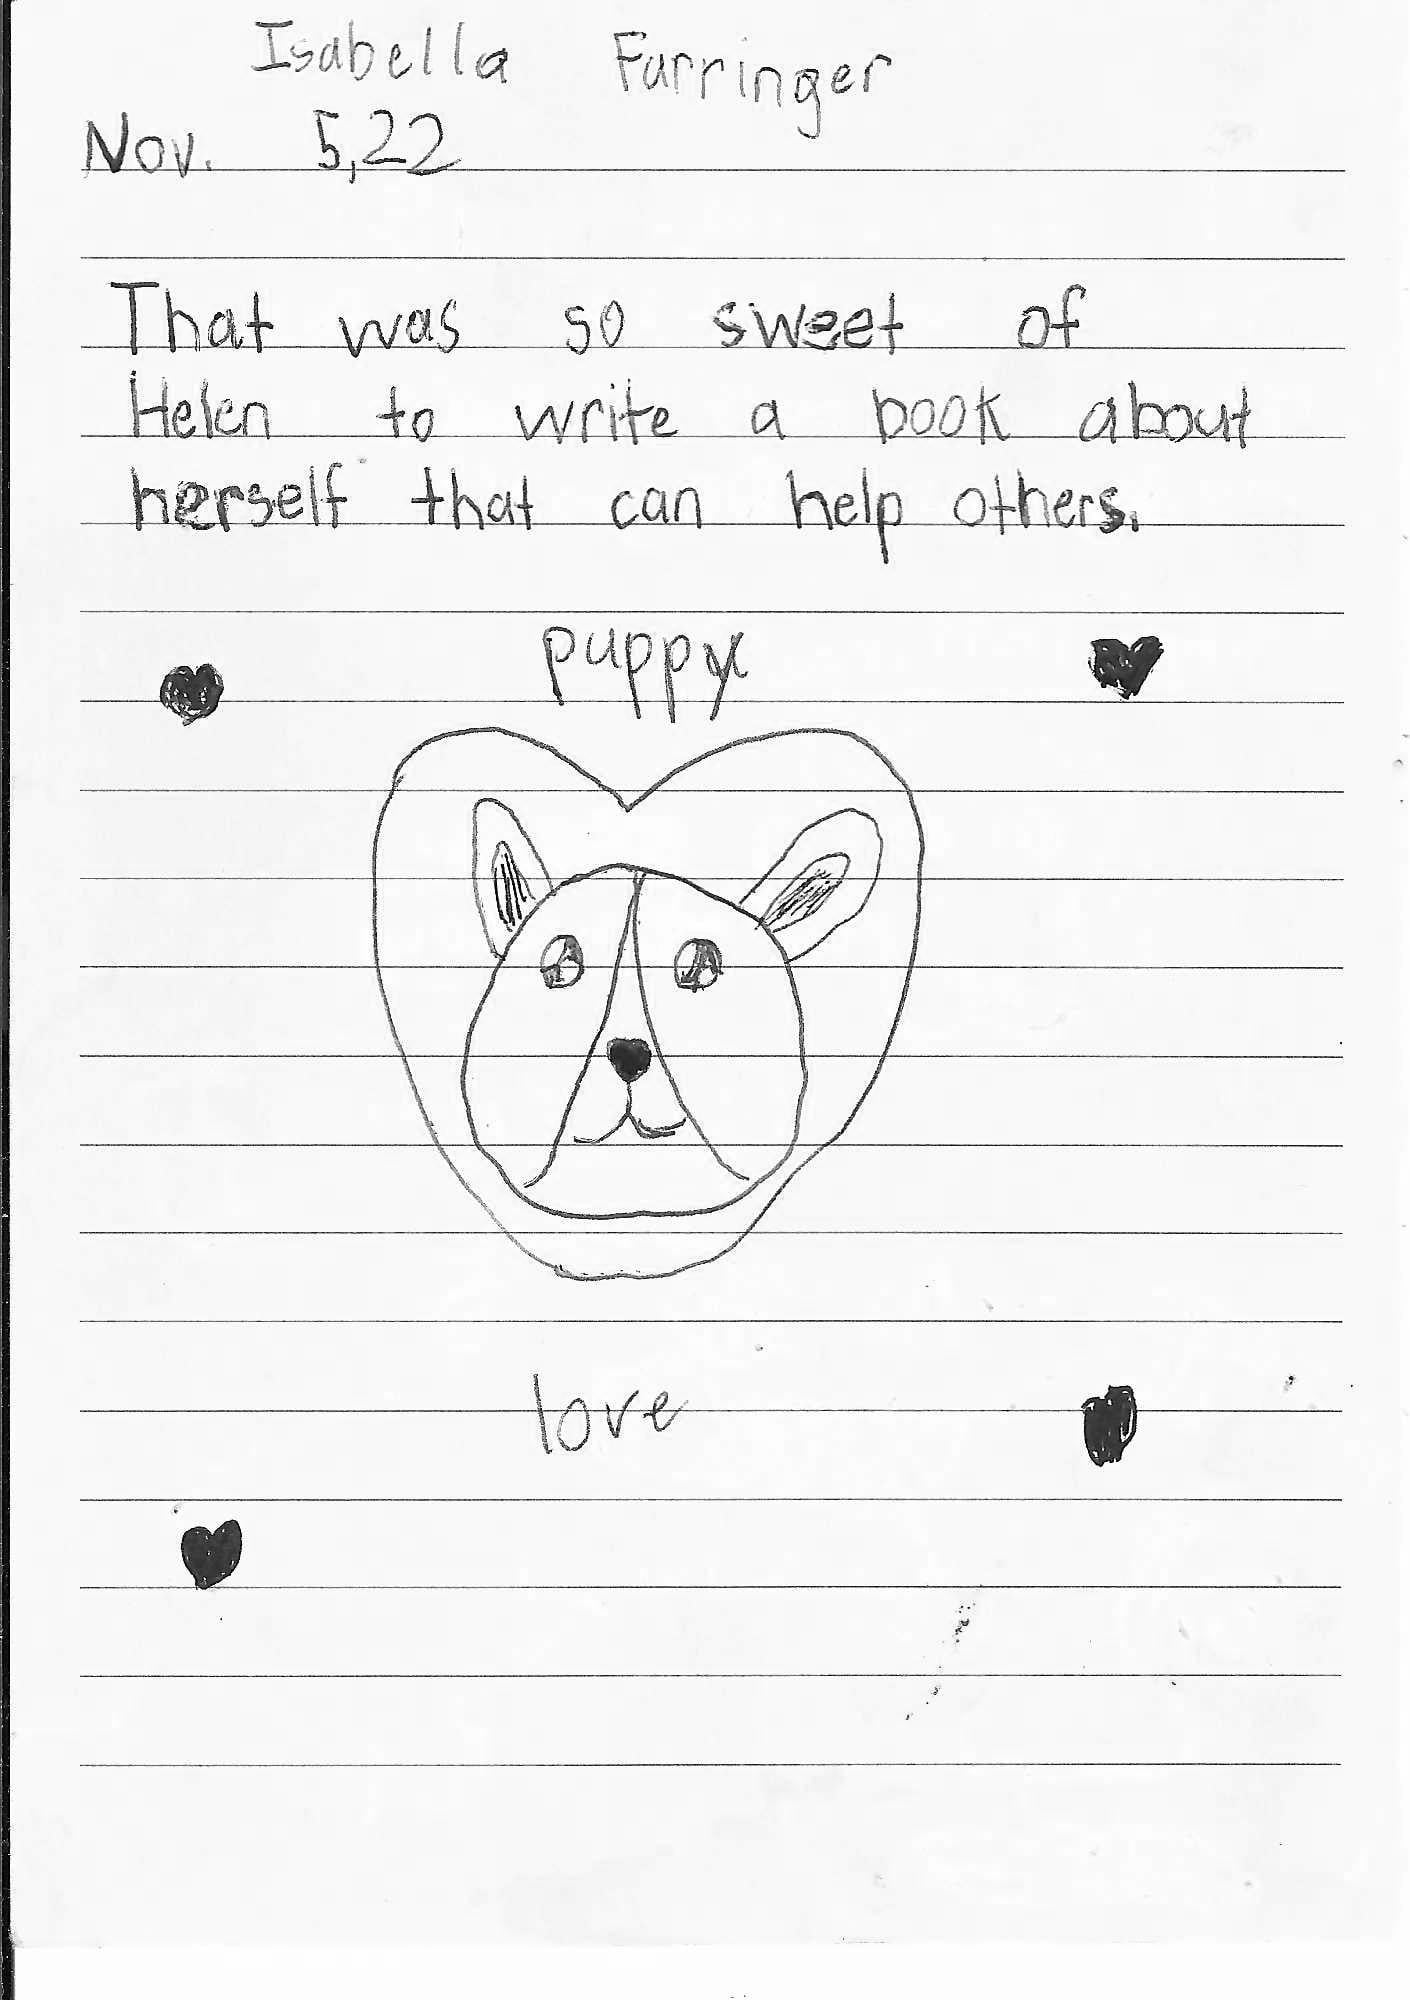 Isabella Farringer
Nov. 5,22
That was so sweet of
Helen to write a book about
herself that can help others.
puppy
love